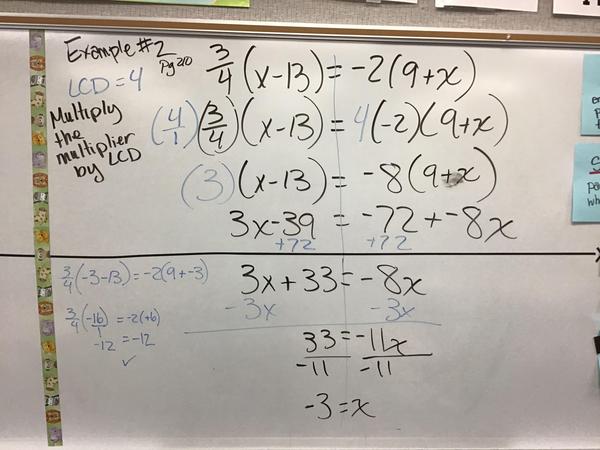 Example #2
Pg 210
LCD = 4
Multiply
the
multiplier
by LCD
3/4 (x-13) = -2(9+x)
(4/1)(3/4)(x-13) = 4(-2)(9+x)
(3)(x-13) = -8(9+x)
3x-39 = -72 + -8x
+72 +72
3x+33 = -8x
-3x -3x
33 = -11x
-11 -11
-3 = x
3/4(-3-13) = -2(9+-3)
3/4(-16/1) = -2(+6)
-12 = -12
✓